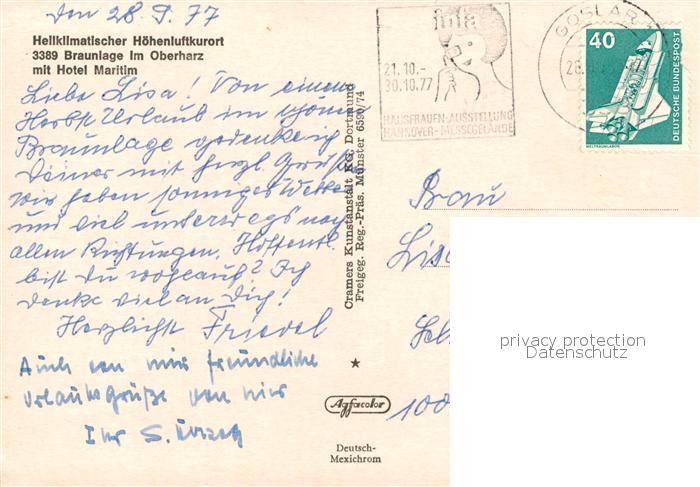 den 28. 9. 77
Heilklimatischer Höhenluftkurort
3389 Braunlage im Oberharz
mit Hotel Maritim
Liebe Lisa! Von einem
Herbst Urlaub im schönen
Braunlage gedenke ich
Deiner mit herzl. Grüßen
wir haben sonniges Wetter
und viel unterwegs nach
allen Richtungen. Hoffentl.
bist Du wohlauf? Ich
denke viel an Dich!
Herzlichst Friedel
Auch von mir freundliche
Urlaubsgrüße von hier
Ihr S.
Cramers Kunstanstalt KG, Dortmund
Freigeg. Reg.-Präs. Münster 6590/74
Agfacolor
Deutsch-
Mexichrom
infa
21.10.-
30.10.77
HAUSFRAUEN-AUSSTELLUNG
HANNOVER-MESSEGELÄNDE
GOSLAR
28.
40
DEUTSCHE BUNDESPOST
WELTRAUMLABOR
Frau
100
privacy protection
Datenschutz